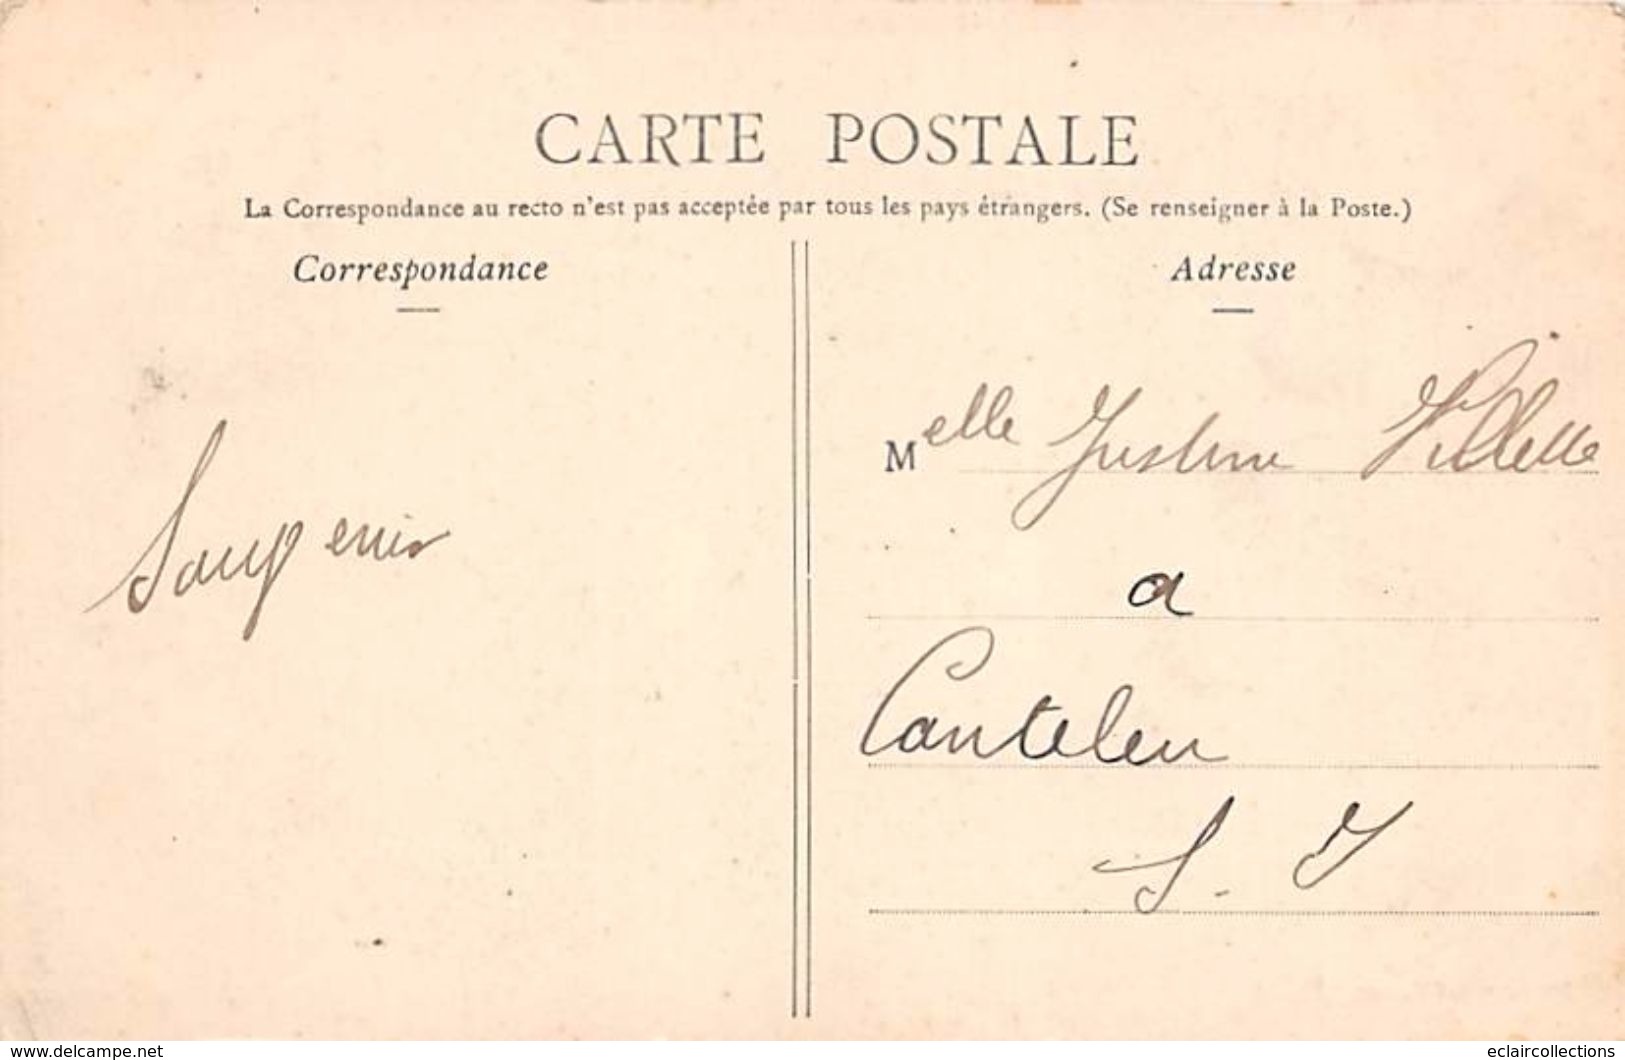 CARTE POSTALE
La Correspondance au recto n'est pas acceptée par tous les pays étrangers. (Se renseigner à la Poste.)
Correspondance
Adresse
Melle Justine Villette
a
Souvenir
Canteleu
S. I
www.delcampe.net
eclaircollections